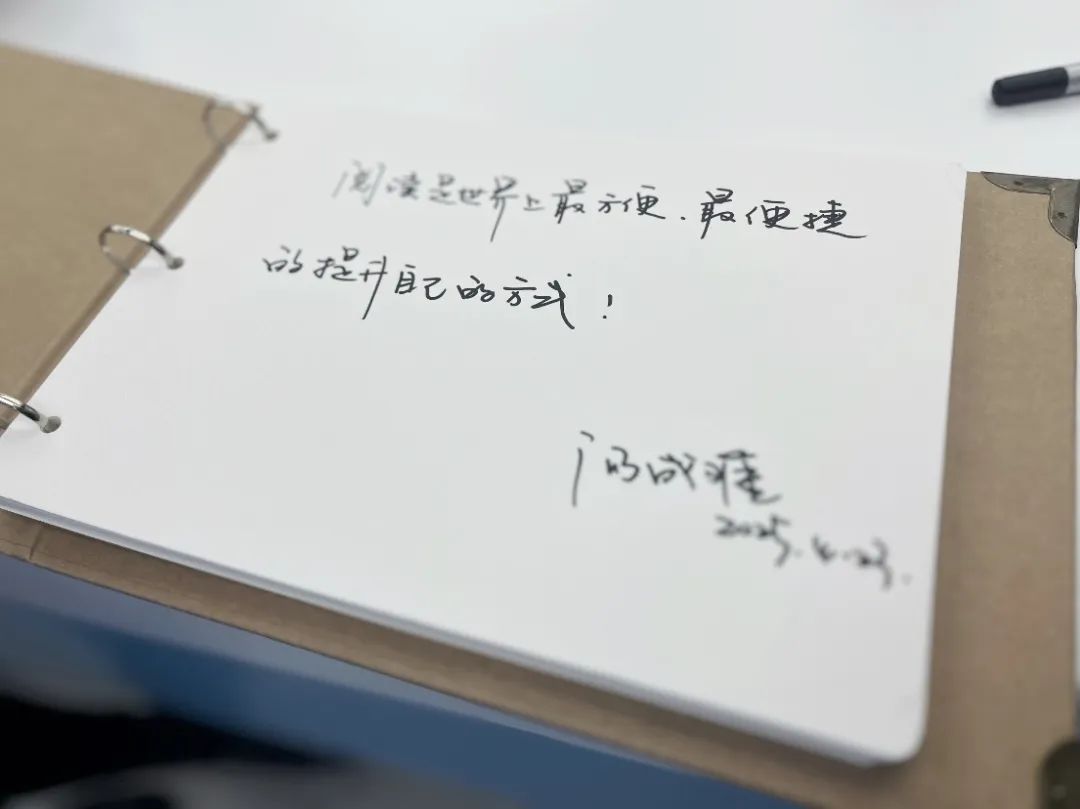 阅读是世界上最方便、最便捷
的提升自己的方式!
成
2025.4.23.